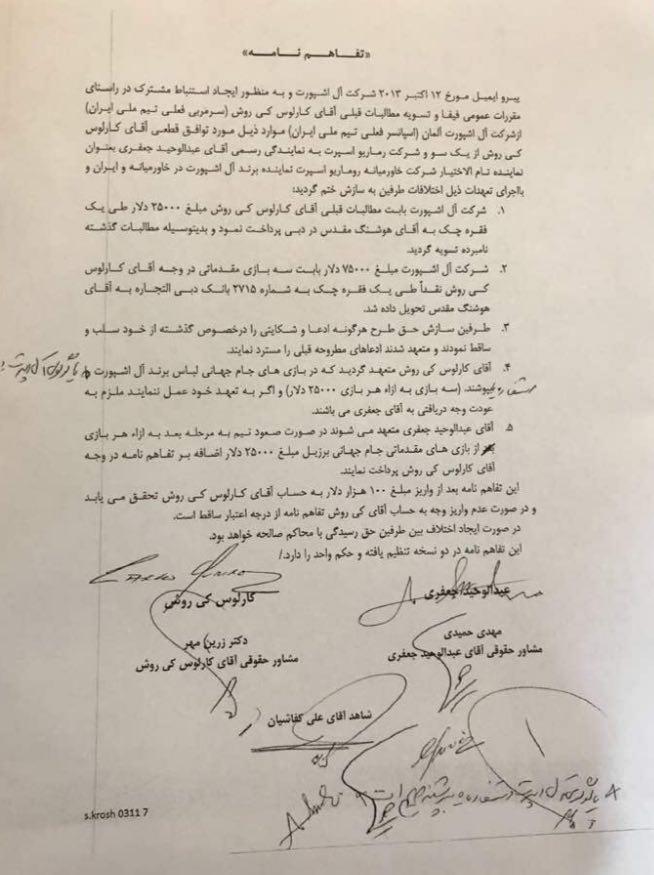 «تفاهم نامه»
پیرو ایمیل مورخ ۱۲ اکتبر ۲۰۱۳ شرکت آل اشپورت و به منظور ایجاد استنباط مشترک در راستای
مقررات عمومی فیفا و تسویه مطالبات قبلی آقای کارلوس کی روش (سرمربی فعلی تیم ملی ایران)
ازشرکت آل اشپورت آلمان (اسپانسر فعلی تیم ملی ایران) موارد ذیل مورد توافق قطعی آقای کارلوس
کی روش از یک سو و شرکت رماریو اسپرت به نمایندگی رسمی آقای عبدالوحید جعفری بعنوان
نماینده تام الاختیار شرکت خاورمیانه روماریو اسپرت نماینده برند آل اشپورت در خاورمیانه و ایران و
بااجرای تعهدات ذیل اختلافات طرفین به سازش ختم گردید:
۱. شرکت آل اشپورت بابت مطالبات قبلی آقای کارلوس کی روش مبلغ ۲۵۰۰۰ دلار طی یک
فقره چک به آقای هوشنگ مقدس در دبی پرداخت نمود و بدینوسیله مطالبات گذشته
نامبرده تسویه گردید.
۲. شرکت آل اشپورت مبلغ ۷۵۰۰۰ دلار بابت سه بازی مقدماتی در وجه آقای کارلوس
کی روش نقداً طی یک فقره چک به شماره ۲۷۱۵ بانک دبی التجاره به آقای
هوشنگ مقدس تحویل داده شد.
۳. طرفین سازش حق طرح هرگونه ادعا و شکایتی را درخصوص گذشته از خود سلب و
ساقط نمودند و متعهد شدند ادعاهای مطروحه قبلی را مسترد نمایند.
۴. آقای کارلوس کی روش متعهد گردید که در بازی های جام جهانی لباس برند آل اشپورت
بپوشند. (سه بازی به ازاء هر بازی ۲۵۰۰۰ دلار) و اگر به تعهد خود عمل ننمایند ملزم به
عودت وجه دریافتی به آقای جعفری می باشند.
۵. آقای عبدالوحید جعفری متعهد می شوند در صورت صعود تیم به مرحله بعد به ازاء هر بازی
از بازی های مقدماتی جام جهانی برزیل مبلغ ۲۵۰۰۰ دلار اضافه بر تفاهم نامه در وجه
آقای کارلوس کی روش پرداخت نمایند.
این تفاهم نامه بعد از واریز مبلغ ۱۰۰ هزار دلار به حساب آقای کارلوس کی روش تحقق می یابد
و در صورت عدم واریز وجه به حساب آقای کی روش تفاهم نامه از درجه اعتبار ساقط است.
در صورت ایجاد اختلاف بین طرفین حق رسیدگی با محاکم صالحه خواهد بود.
این تفاهم نامه در دو نسخه تنظیم یافته و حکم واحد را دارد./
عبدالوحید جعفری
کارلوس کی روش
مهدی حمیدی
مشاور حقوقی آقای عبدالوحید جعفری
دکتر زرین مهر
مشاور حقوقی آقای کارلوس کی روش
شاهد آقای علی کفاشیان
s.krosh 0311 7